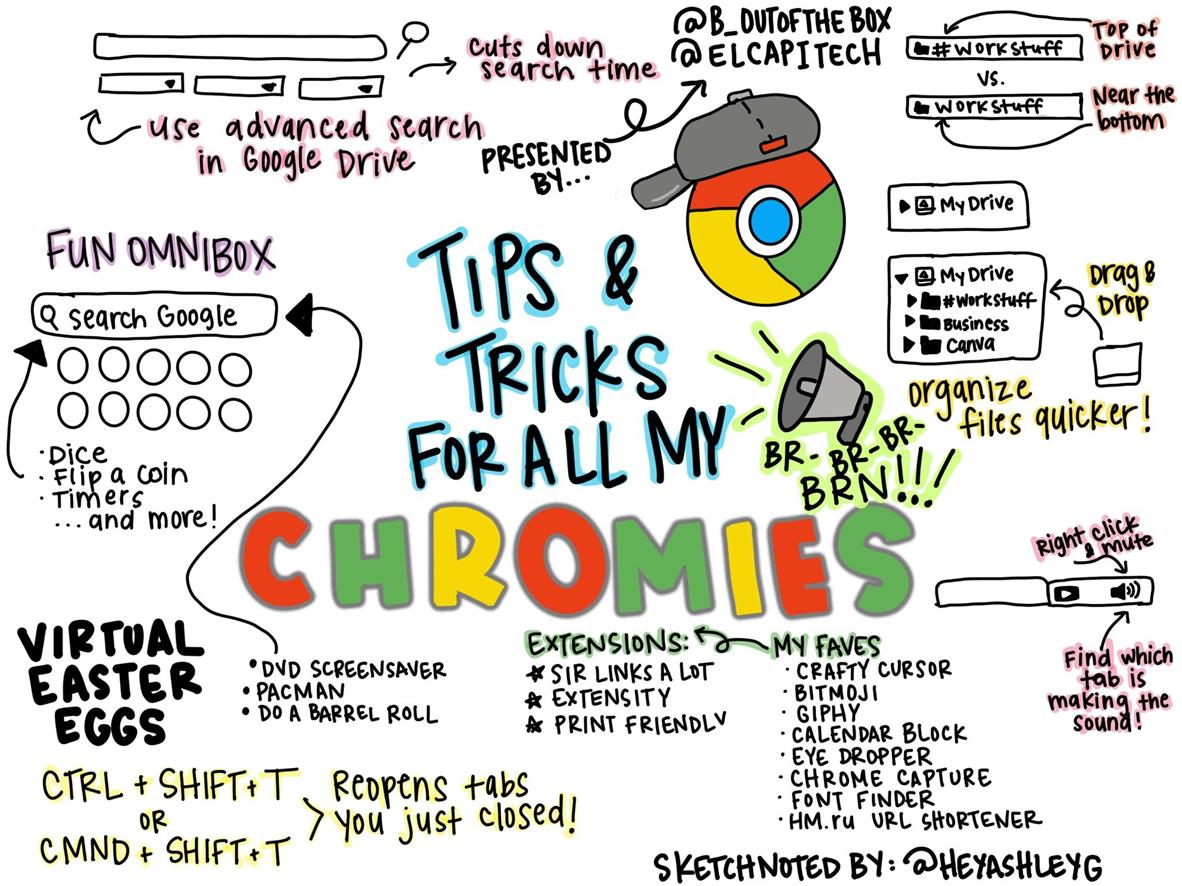 @B_OUTOFTHEBOX
@ELCAPITECH
PRESENTED
BY...
Cuts down
search time
use advanced search
in Google Drive
#workstuff
Top of
Drive
vs.
workstuff
Near the
bottom
My Drive
My Drive
#workstuff
Business
Canva
Drag &
Drop
organize
files quicker!
FUN OMNIBOX
search Google
· Dice
· Flip a coin
· Timers
... and more!
TIPS &
TRICKS
FOR ALL MY
CHROMIES
BR- BR-BR-
BRN!!!
Right click
& mute
Find which
tab is
making the
sound!
VIRTUAL
EASTER
EGGS
• DVD SCREENSAVER
• PACMAN
• DO A BARREL ROLL
EXTENSIONS:
★ SIR LINKS A LOT
★ EXTENSITY
★ PRINT FRIENDLY
MY FAVES
· CRAFTY CURSOR
· BITMOJI
· GIPHY
· CALENDAR BLOCK
· EYE DROPPER
· CHROME CAPTURE
· FONT FINDER
· HM.ru URL SHORTENER
CTRL + SHIFT + T
OR
CMND + SHIFT + T
Reopens tabs
you just closed!
SKETCHNOTED BY: @HEYASHLEYG